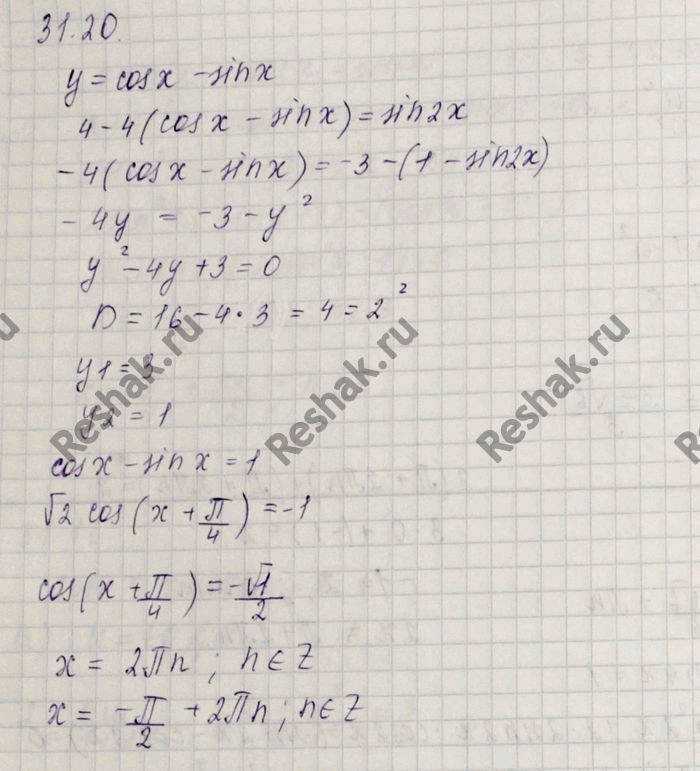 31.20.
y = cosx - sinx
4 - 4(cosx - sinx) = sin2x
-4(cosx - sinx) = -3 - (1 - sin2x)
-4y = -3 - y²
y² - 4y + 3 = 0
D = 16 - 4·3 = 4 = 2²
y1 = 3
y2 = 1
cosx - sinx = 1
√2 cos(x + π/4) = -1
cos(x + π/4) = -√1/2
x = 2πn; n∈Z
x = -π/2 + 2πn; n∈Z
Reshak.ru
Reshak.ru
Reshak.ru